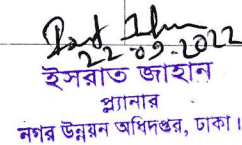 22-09-2022
ইসরাত জাহান
প্ল্যানার
নগর উন্নয়ন অধিদপ্তর, ঢাকা।